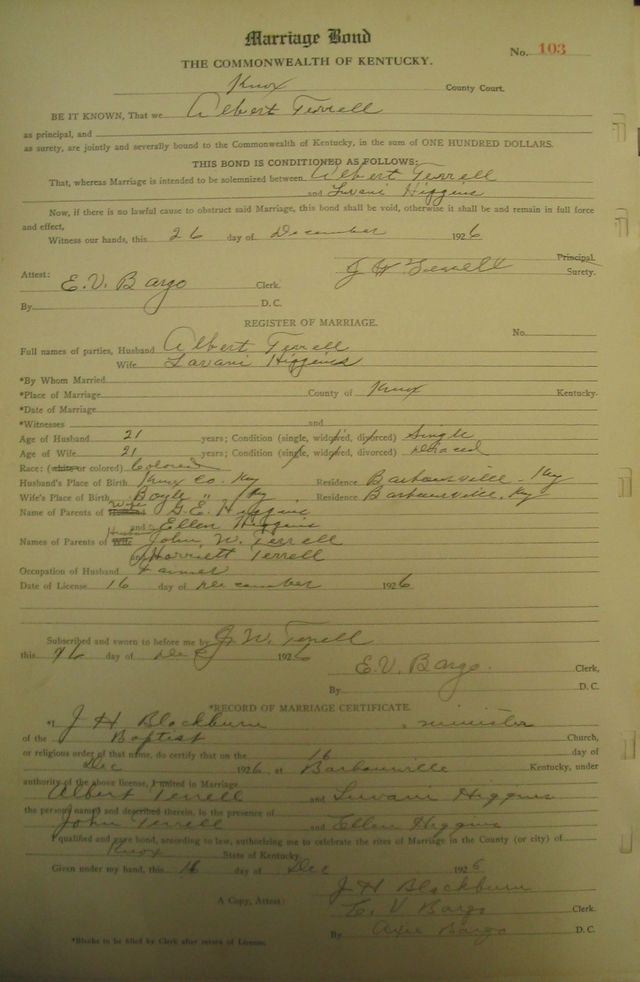 Marriage Bond
No. 103
THE COMMONWEALTH OF KENTUCKY.
Knox County Court.
BE IT KNOWN, That we Albert Terrell
as principal, and
as surety, are jointly and severally bound to the Commonwealth of Kentucky, in the sum of ONE HUNDRED DOLLARS.
THIS BOND IS CONDITIONED AS FOLLOWS:
That, whereas Marriage is intended to be solemnized between Albert Terrell
and Luvani Higgins
Now, if there is no lawful cause to obstruct said Marriage, this bond shall be void, otherwise it shall be and remain in full force
and effect,
Witness our hands, this 26 day of December 1926
Principal.
J W Terrell Surety.
Attest:
E. V. Bargo Clerk.
By D. C.
REGISTER OF MARRIAGE.
No.
Full names of parties, Husband Albert Terrell
Wife Lavani Higgins
*By Whom Married
*Place of Marriage County of Knox Kentucky.
*Date of Marriage
*Witnesses and
Age of Husband 21 years; Condition (single, widowed, divorced) Single
Age of Wife 21 years; Condition (single, widowed, divorced)
Race: (white or colored) Colored
Husband's Place of Birth Knox Co. Ky Residence Barbourville - Ky
Wife's Place of Birth Boyle " Ky Residence Barbourville, Ky
Name of Parents of Husband Wife G. E. Higgins
and Ellen Higgins
Names of Parents of Wife Husband John, W. Terrell
and Harriett Terrell
Occupation of Husband Farmer
Date of License 16 day of December 1926
Subscribed and sworn to before me by J. W. Terrell
this 16 day of Dec 1926
E. V. Bargo. Clerk,
By D. C.
*RECORD OF MARRIAGE CERTIFICATE.
*I J H Blackburn, minister
of the Baptist Church,
or religious order of that name, do certify that on the 16 day of
Dec 1926, at Barbourville Kentucky, under
authority of the above license, I united in Marriage
Albert Terrell and Luvani Higgins
the persons named and described therein, in the presence of
John Terrell and Ellen Higgins
I qualified and gave bond, according to law, authorizing me to celebrate the rites of Marriage in the County (or city) of
Knox State of Kentucky.
Given under my hand, this 16 day of Dec 1926
J H Blackburn
A Copy, Attest: E. V Bargo Clerk.
By Bargo D. C.
*Blanks to be filled by Clerk after return of License.